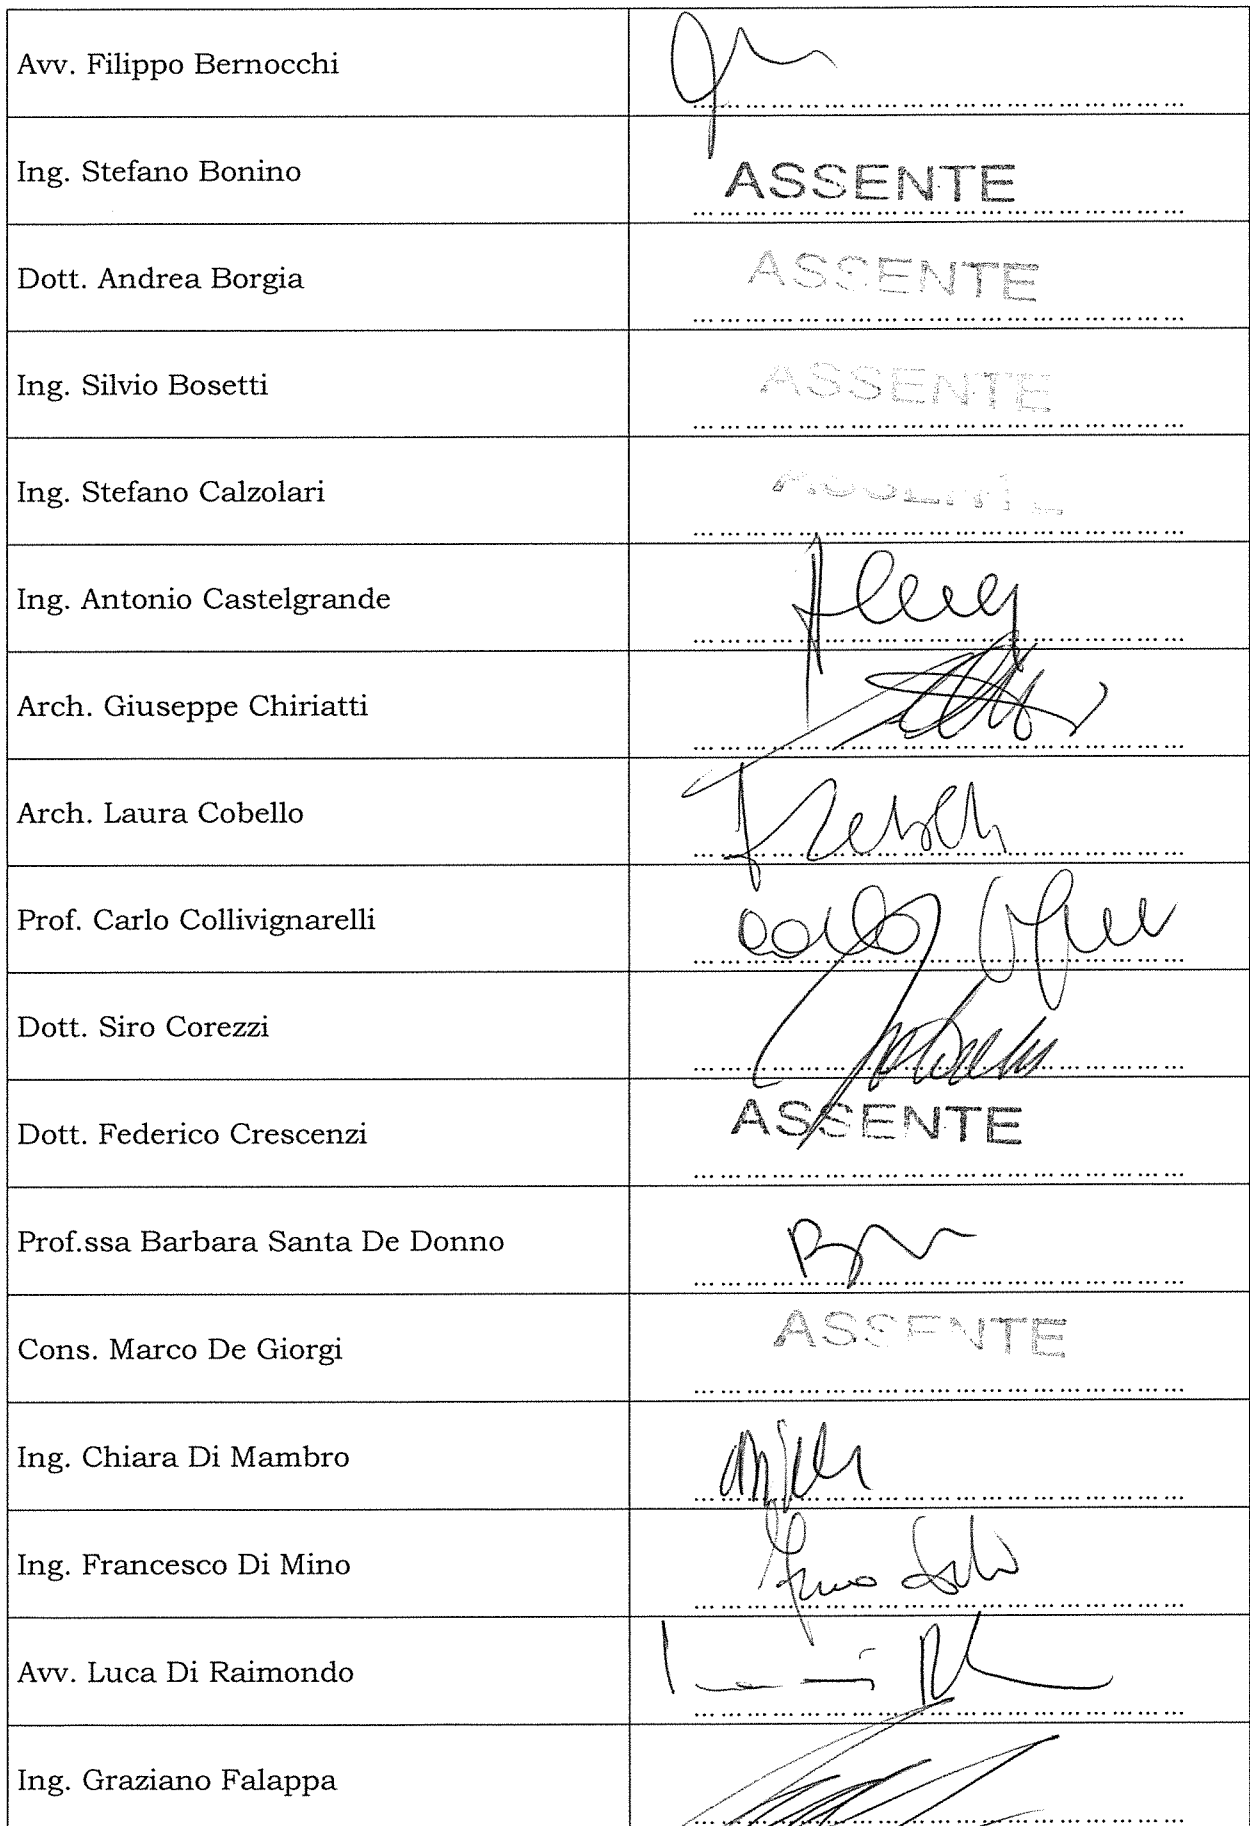 Avv. Filippo Bernocchi
Ing. Stefano Bonino ASSENTE
Dott. Andrea Borgia ASSENTE
Ing. Silvio Bosetti ASSENTE
Ing. Stefano Calzolari ASSENTE
Ing. Antonio Castelgrande
Arch. Giuseppe Chiriatti
Arch. Laura Cobello
Prof. Carlo Collivignarelli
Dott. Siro Corezzi
Dott. Federico Crescenzi ASSENTE
Prof.ssa Barbara Santa De Donno
Cons. Marco De Giorgi ASSENTE
Ing. Chiara Di Mambro
Ing. Francesco Di Mino
Avv. Luca Di Raimondo
Ing. Graziano Falappa